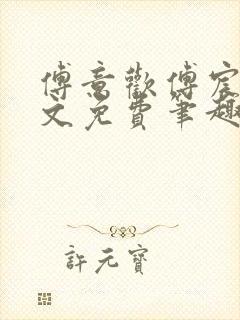 傅意歡傅宸
文免費筆趣
許元寶